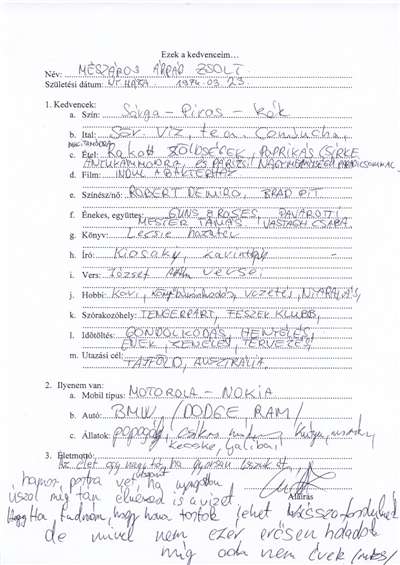 Ezek a kedvenceim…
Név: MÉSZÁROS ÁRPÁD ZSOLT
Születési dátum: NYÍREGYHÁZA 1974. 03. 23
1. Kedvencek:
a. Szín: Sárga – Piros – Kék
b. Ital: Sör, víz, tea,
c. Étel: Rakott ZÖLDSÉGEK, PAPRIKÁS CSIRKE
ANYUKÁMMÓDRA, ÉS PÁRIZSI NAGYMAMAMÓDRA
d. Film: INDUL A BAKTERHÁZ
e. Színész/nő: ROBERT DENIRO, BRAD PIT
f. Énekes, együttes: GUNS & ROSES, PAVAROTTI
MESTER TAMÁS, VASTAGH CSABA
g. Könyv: Lecsie hazatér
h. Író: Kiosaky,
i. Vers: József Attila verse
j. Hobbi: vezetés, NYARALÁS,
k. Szórakozóhely: TENGERPART, FÉSZEK KLUBB,
l. Időtöltés: GONDOLKODÁS, HENYÉLÉS,
ÉNEK, ZENÉLÉS, TERVEZÉS
m. Utazási cél:
THAIFÖLD, AUSZTRÁLIA.
2. Ilyenem van:
a. Mobil típus: MOTOROLA – NOKIA
b. Autó: BMW, /DODGE RAM/
c. Állatok: papagáj, Kutya,
kecske,
3. Életmottó: Az élet egy nagy tó, ha gyorsan úszunk át
hamar partra vet, ha nyugodtan
úszol még tán élvezed is a vizet
Aláírás
Ha tudnám, hogy hova tartok lehet visszafordulnék
de mivel nem ezért erősen haladok
míg oda nem érek